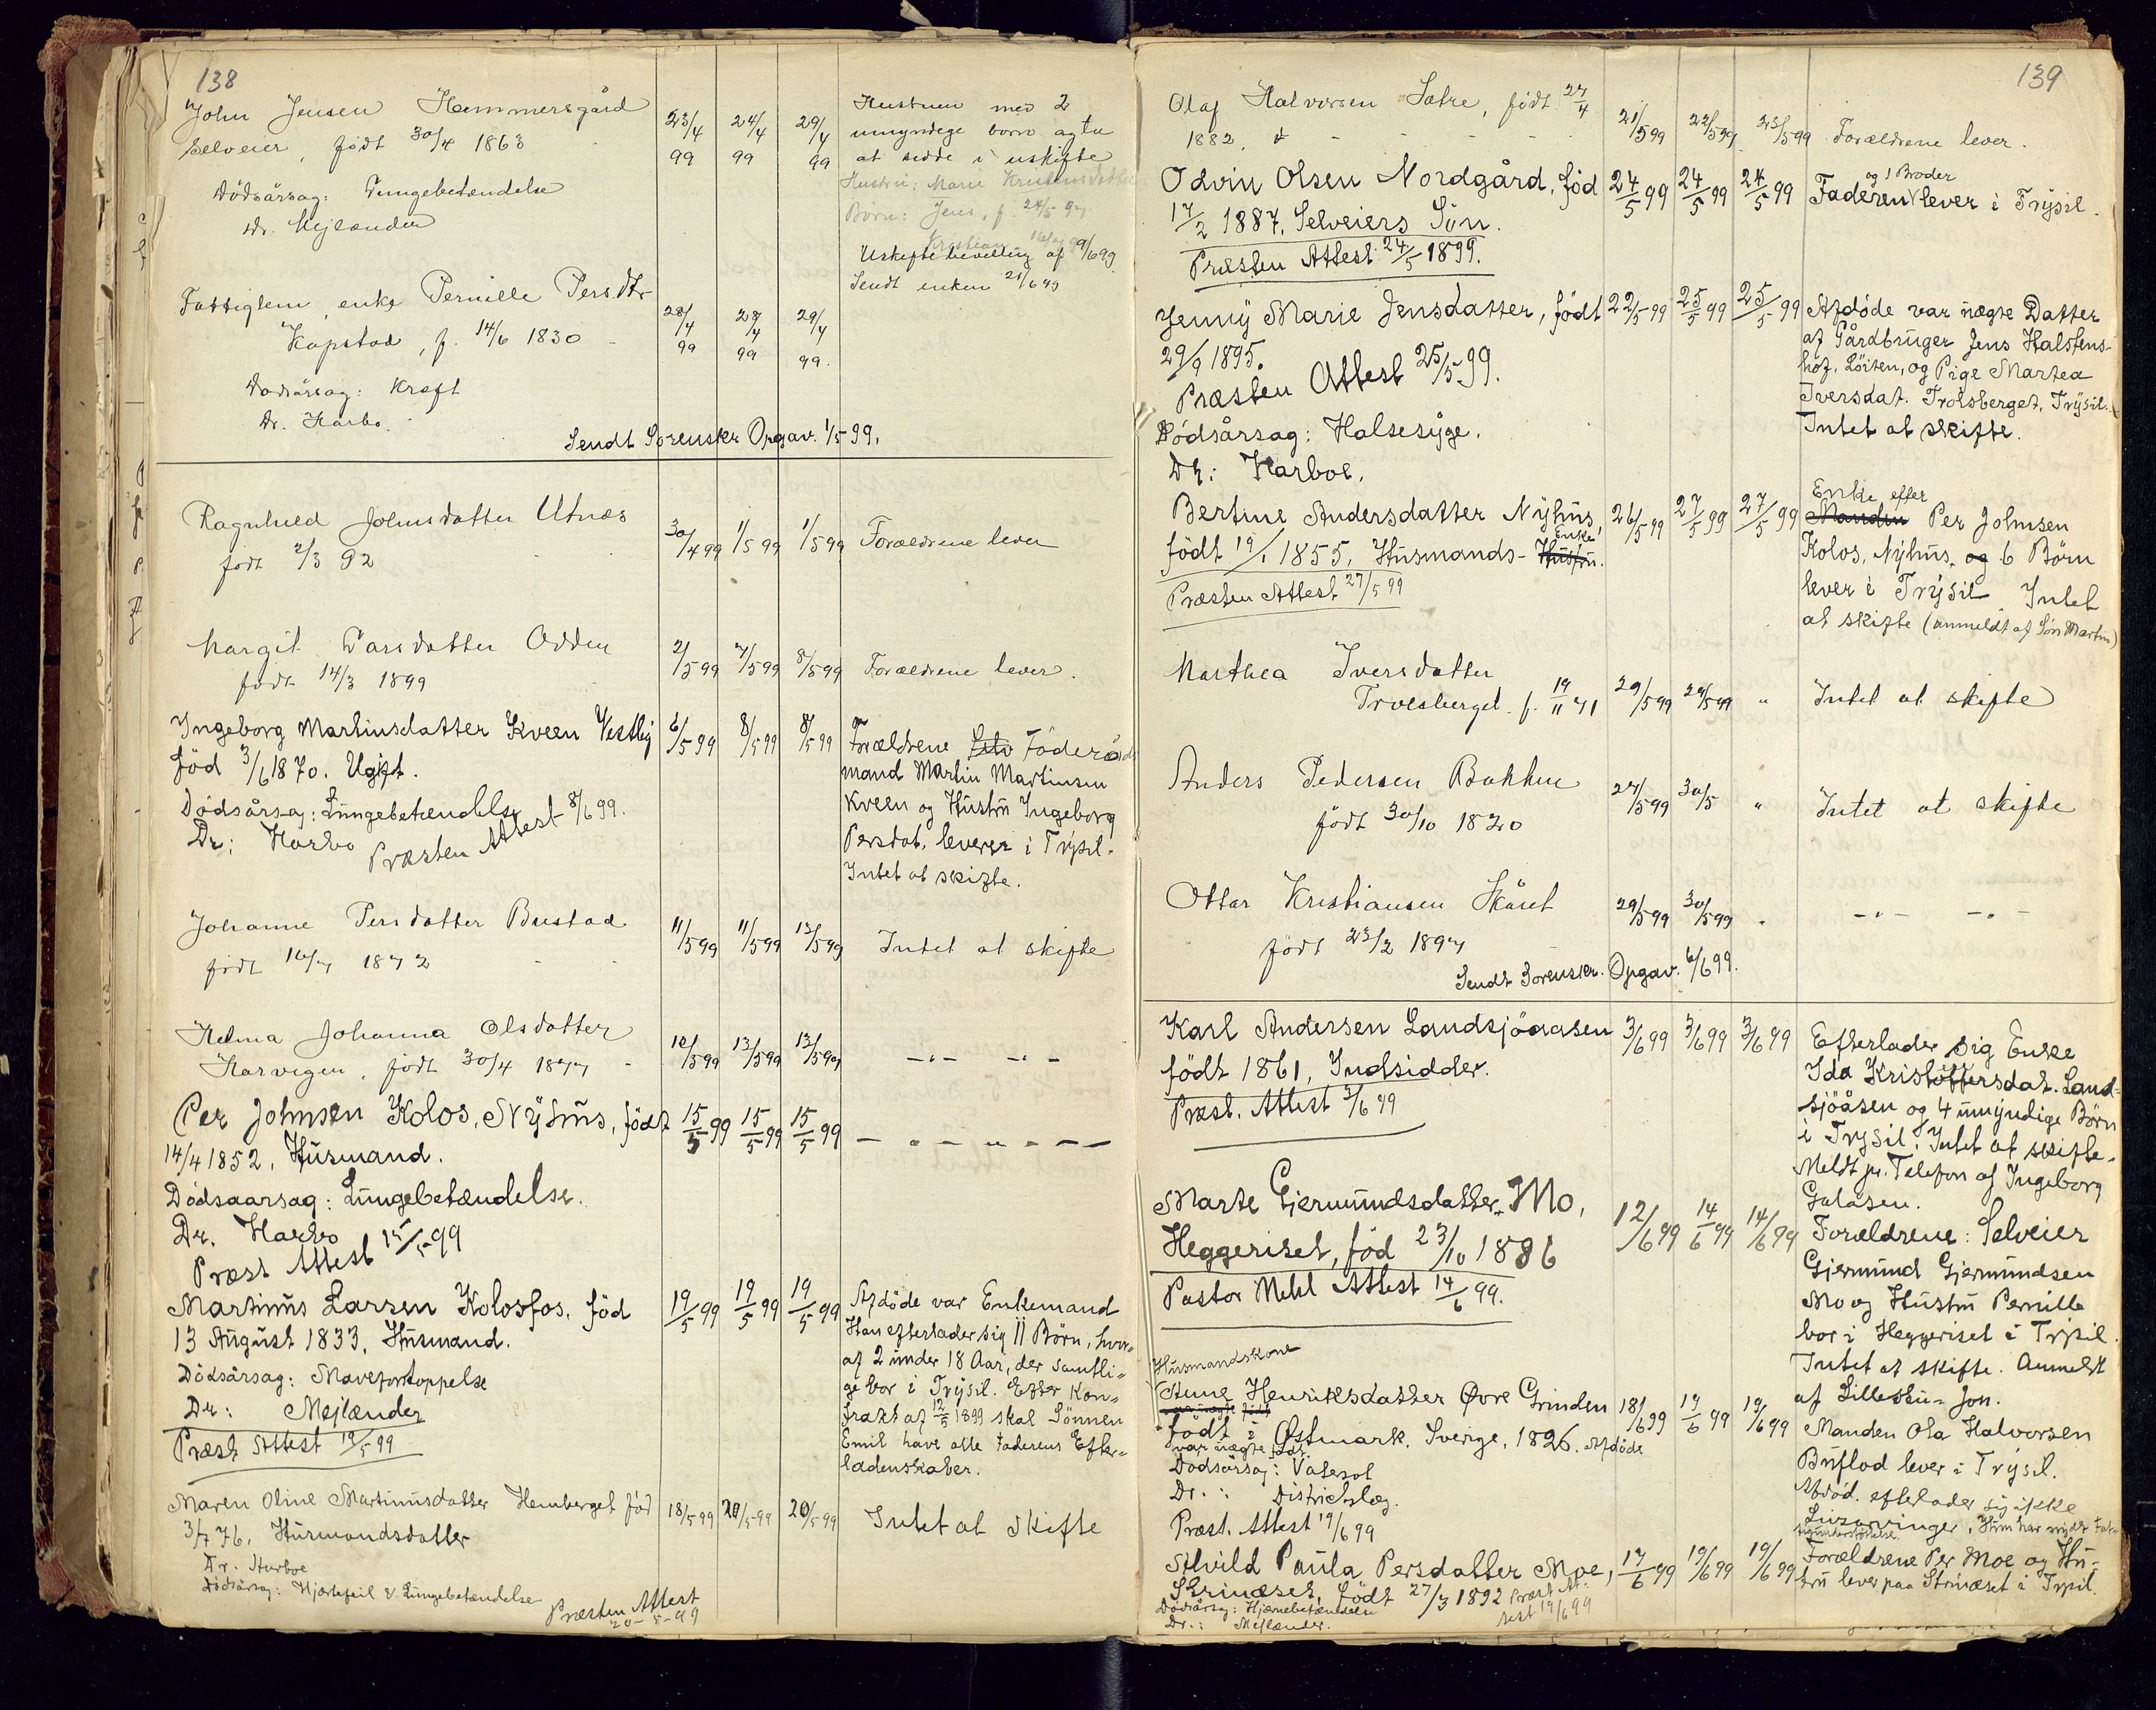 138
John Jensen Hemmersgård
Selveier, født 30/4 1863
Dødsårsag: Lungebetændelse
Dr. Mejlænder
23/4 99 24/4 99 29/4 99
Hustruen med 2
umyndige børn agte
at sidde i uskifte
Hustru: Marie Kristensdatter
Børn: Jens, f. 24/5 97
Kristian
Uskiftebevilling af 9/6 99
Sendt enken 21/6 99
Fattiglem, enke Pernille Persdtr
Kopstad, f. 14/6 1830
Dødsårsag: Kræft
Dr. Harbo.
28/4 99 28/4 99 29/4 99.
Sendt Sorenskr Opgav. 1/5 99.
Ragnhild Johnsdatter Utnes
født 2/3 92
30/4 99 1/5 99 1/5 99 Forældrene lever
Margit Larsdatter Odden
født 14/3 1899
2/5 99 7/5 99 8/5 99 Forældrene lever.
Ingeborg Martinsdatter Kveen Vestby
född 3/6 1870. Ugift.
Dödsårsag: Lungebetændelse
Dr: Harbo Præsten Attest 8/6 99.
6/5 99 8/5 99 8/5 99
Forældrene Føderåds
mand Martin Martinsen
Kveen og Hustru Ingeborg
Persdat. leverer i Trysil.
Intet at skifte.
Johanne Persdatter Bustad
født 16/7 1872
11/5 99 11/5 99 13/5 99 Intet at skifte
Helma Johanna Olsdatter
Harvigen, født 30/4 1877
10/5 99 13/5 99 13/5 99 -"- -"-
Per Johnsen Kolos, Nyhus, född
14/4 1852, Husmand.
15/5 99 15/5 99 15/5 99 - " - " - " -
Dödsaarsag: Lungebetændelse.
Dr. Harbo
Præst Attest 15/5 99
Martinus Larsen Kolosfos, föd
13 August 1833, Husmand.
Dödsårsag: Maveforstoppelse
Dr: Mejlænder
Præst Attest 19/5 99
19/5 99 19/5 99 19/5 99
Afdöde var Enkemand
Han efterlader sig 11 Börn, hvor-
af 2 under 18 Aar, der samtli-
ge bor i Trysil. Efter Kon-
trakt af 12/5 1899 skal Sönnen
Emil have alle Faderens Efter-
ladenskaber.
Maren Oline Martinusdatter Hemberget föd
3/7 76. Husmandsdatter
Dr. Harboe
Dödsårsag: Hjertefeil & Lungebetændelse
Præsten Attest
20-5-99
18/5 99 20/5 99 20/5 99 Intet at skifte
139
Olaf Halvorsen Sætre, født 27/4
1882.
21/5 99 22/5 99 23/5 99 Forældrene lever.
Odvin Olsen Nordgård, föd
17/2 1887, Selveiers Sön.
Præsten Attest 24/5 1899.
24/5 99 24/5 99 24/5 99
og 1 Broder
Faderen lever i Trysil.
Jenny Marie Jensdatter, födt
29/9 1895.
Præsten Attest 25/5 99.
Dödsårsag: Halsesyge.
Dr: Harboe.
22/5 99 25/5 99 25/5 99
Afdöde var uægte Datter
af Gårdbruger Jens Halstens-
hof, Löiten, og Pige Martea
Iversdat. Trolsberget, Trysil.
Intet at skifte.
Bertine Andersdatter Nyhus,
Enke
födt 19/1 1855, Husmands- Hustru.
Præsten Attest 27/5 99
26/5 99 27/5 99 27/5 99
Enke efter
Manden Per Johnsen
Kolos, Nyhus, og 6 Börn
lever i Trysil Intet
at skifte (anmeldt af Sön Martin)
Marthea Iversdatter
Troesberget. f. 19/11 71
29/5 99 29/5 99 " Intet at skifte
Anders Pedersen Bakken
født 30/10 1820
27/5 99 30/5 " Intet at skifte
Ottar Kristiansen Skåret
født 23/2 1897
29/5 99 30/5 99 " -"- -"-
Sendt Sorenskr. Opgav. 6/6 99.
Karl Andersen Landsjöaasen
födt 1861, Indsidder.
Præst. Attest 3/6 99
3/6 99 3/6 99 3/6 99
Efterlader sig Enke
Ida Kristoffersdat. Land-
sjöåsen og 4 umyndige Börn
i Trysil. Intet at skifte.
Meldt pr. Telefon af Ingeborg
Galåsen.
Marte Gjermundsdatter Mo,
Heggeriset, föd 23/10 1886
Pastor Mehl Attest 14/6 99.
12/6 99 14/6 99 14/6 99
Forældrene: Selveier
Gjermund Gjermundsen
Mo og Hustru Pernille
bor i Heggeriset i Trysil.
Intet at skifte. Anmeldt
af Lillestu-Jon.
Husmandskone
Anne Henriksdatter Øvre Grinden
födt i Østmark, Sverige, 1826. Afdöde
var uægte födt
Dødsårsag: Vatersot
Dr.: Distriktslæg.
Præst. Attest 19/6 99
18/6 99 19/6 99 19/6 99
Manden Ola Halvorsen
Buflod lever i Trysil.
Afdöd. efterlader sig ikke
Livsarvinger, Hun har nydt Fat-
tigunderstöttelse.
Alvild Paula Persdatter Moe,
Strinæset, födt 27/3 1892 Præst At-
test 19/6 99
Dödsårsag: Hjernebetændelse
Dr.: Mejlænder.
17/6 99 19/6 99 19/6 99
Forældrene Per Moe og Hu-
stru lever paa Strinæset i Trysil.